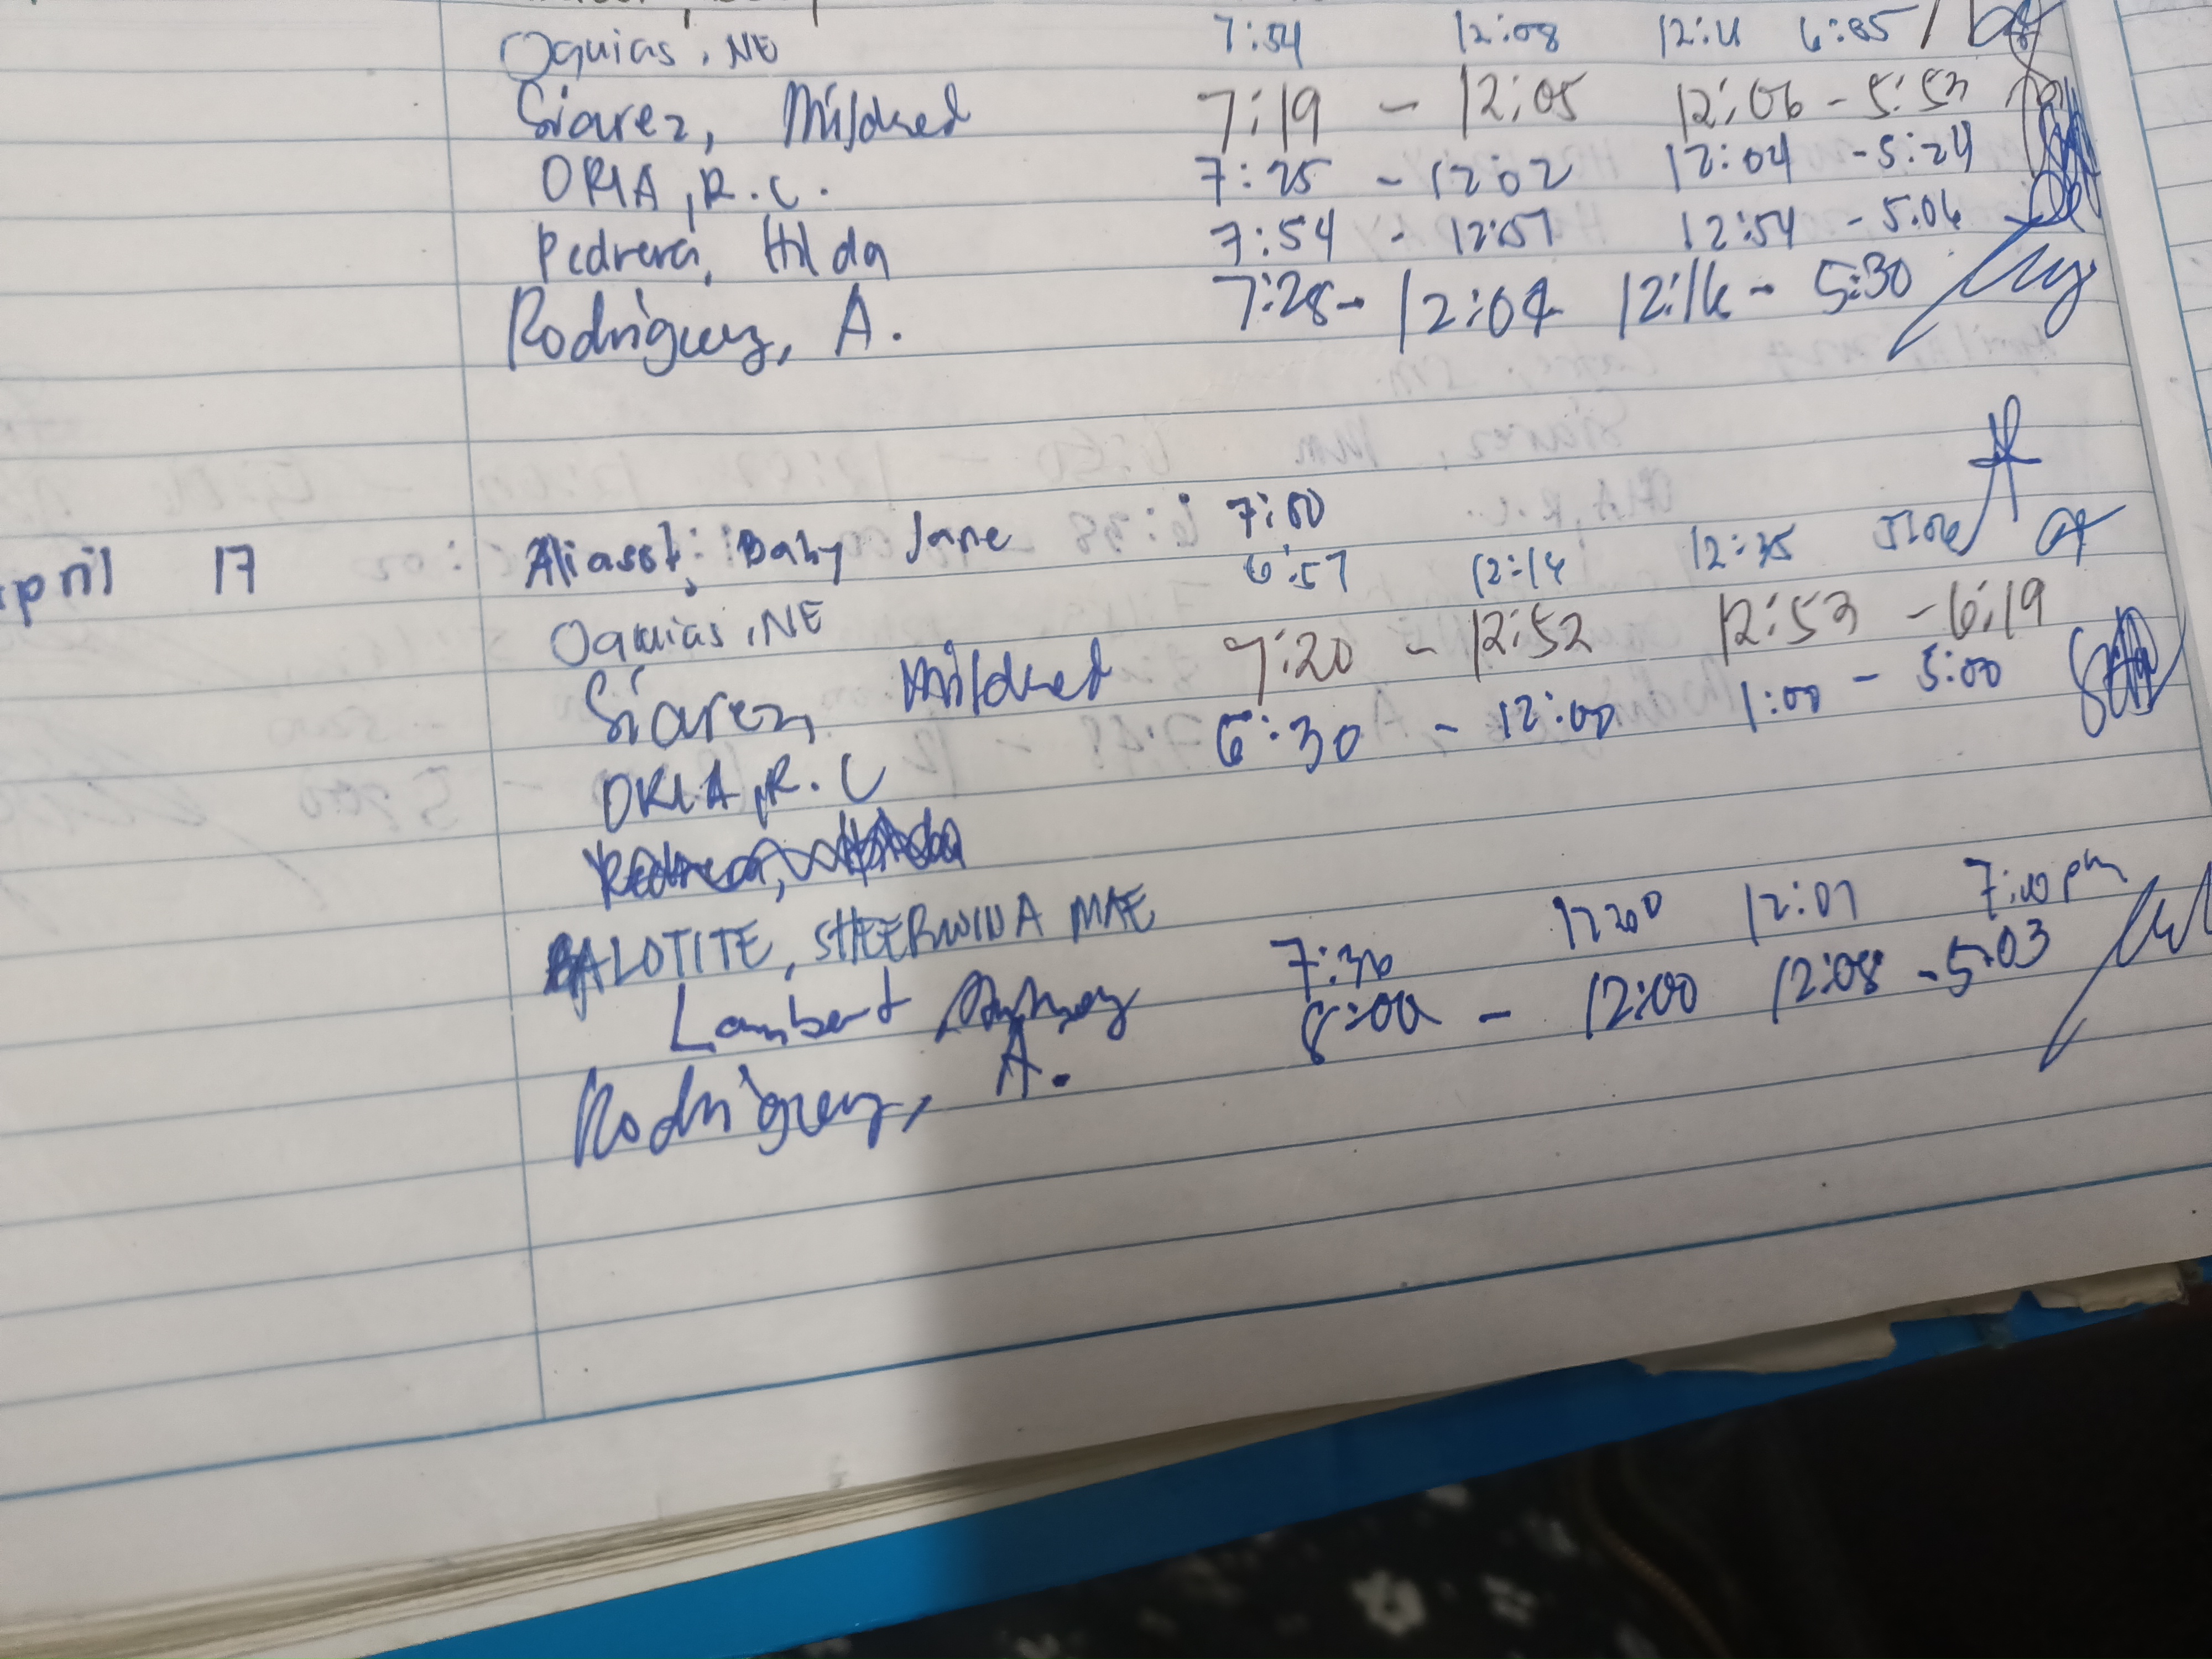 Oquias, NE 7:54 12:08 12:11 6:05
Siarez, Mildred 7:19 - 12:05 12:06 - 5:53
ORIA, R.C. 7:25 - 12:02 12:04 - 5:24
Pedrera, Hilda 7:54 - 12:51 12:54 - 5:06
Rodriguez, A. 7:28 - 12:04 12:16 - 5:30
April 17 Aliasot, Baby Jane 7:00
Oquias, NE 6:57 12:14 12:35 5:06
Siarez, Mildred 7:20 - 12:52 12:53 - 6:19
ORIA, R.C 6:30 - 12:00 1:00 - 5:00
BALOTITE, SHEERWINA MAE
Lambert 7:30 12:00 12:01 7:00 pm
Rodriguez, A. 8:00 - 12:00 12:08 - 5:03